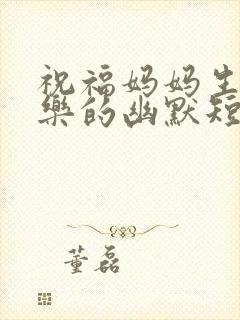 祝福妈妈生
乐的幽默短
董磊